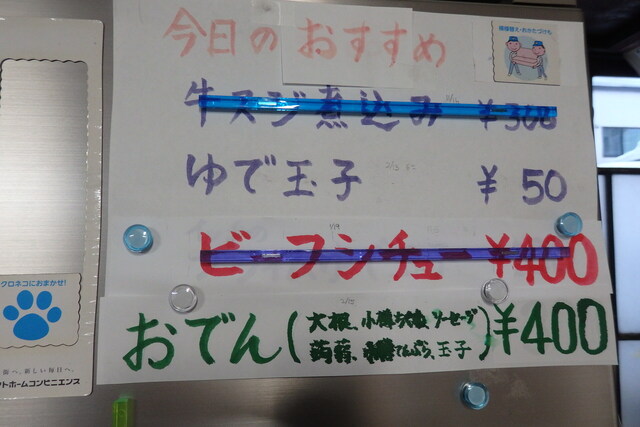 今日のおすすめ
模様替え・おかたづけも
牛スジ煮込み ¥300
ゆで玉子 ¥50
ビーフシチュー ¥400
おでん(大根、小樽 ソーセージ
蒟蒻、 てんぷら、玉子) ¥400
クロネコにおまかせ!
街へ。新しい毎日へ。
トホームコンビニエンス